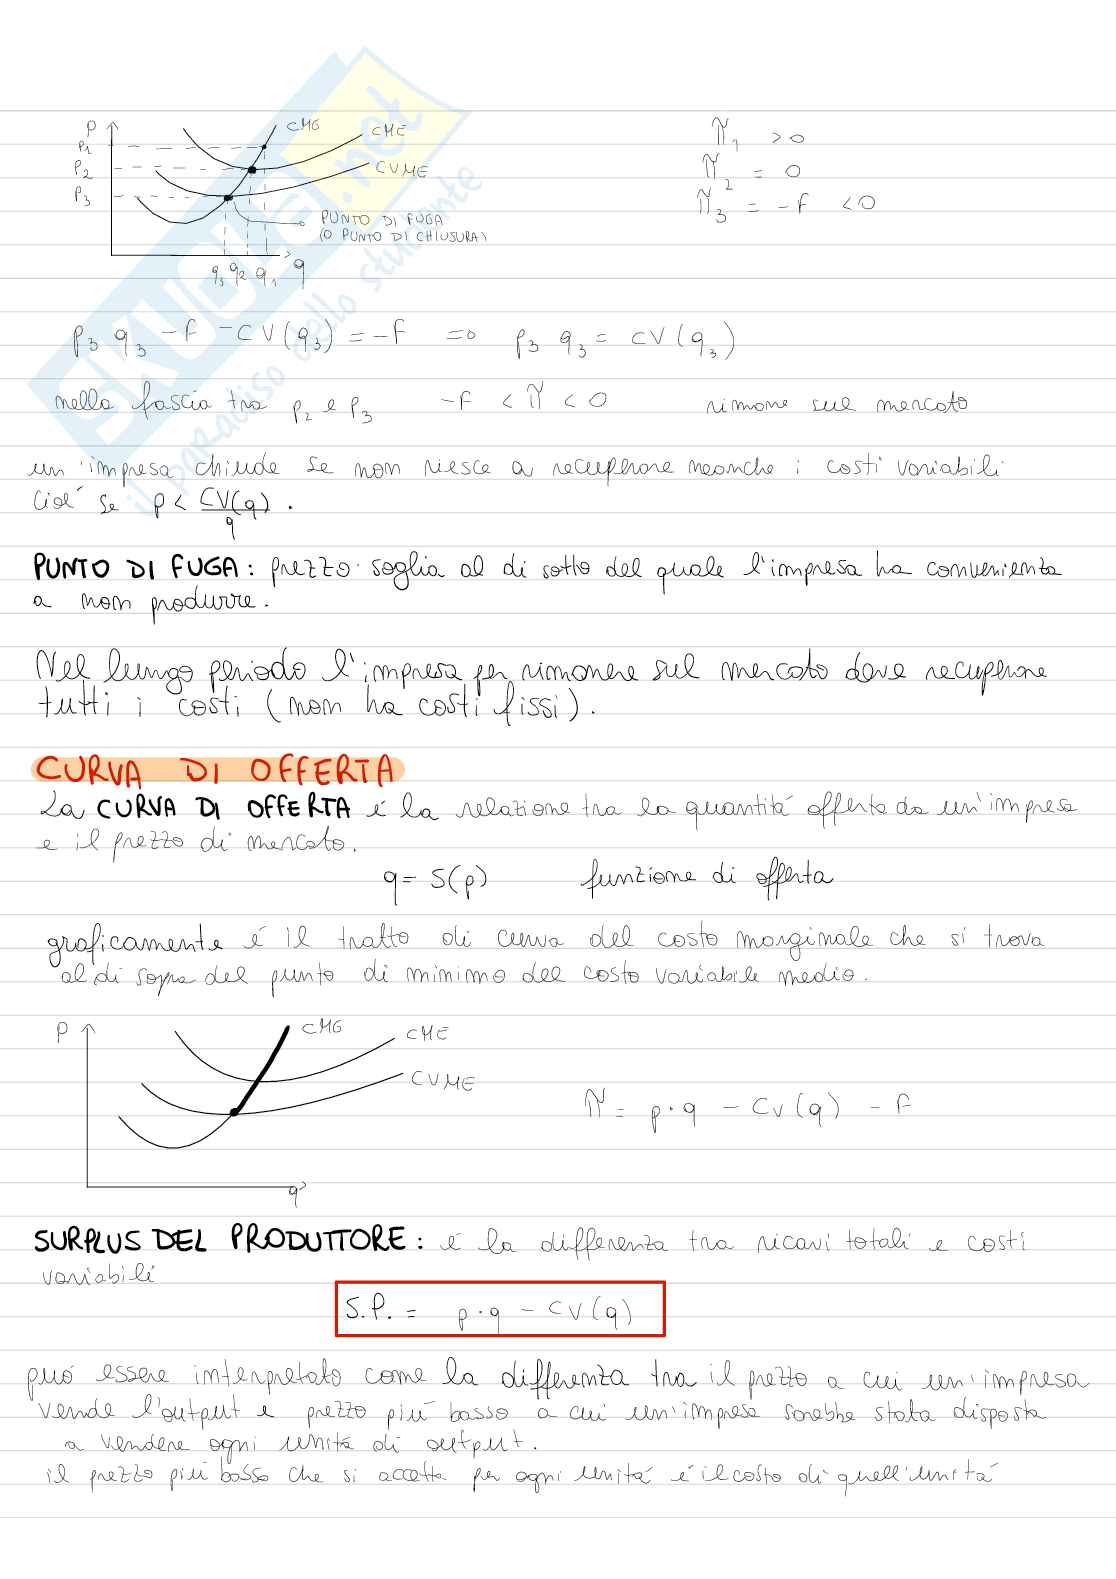 p
CMG
CME
P1
P2
CVME
P3
PUNTO DI FUGA
(O PUNTO DI CHIUSURA)
q3 q2 q1 q
π1 > 0
π2 = 0
π3 = -F < 0
SKUOLA.net
il paradiso dello studente
p3 q3 - F - CV(q3) = -F => p3 q3 = CV(q3)
nella fascia tra p2 e p3 -F < π < 0 rimane sul mercato
un'impresa chiude se non riesce a recuperare neanche i costi variabili
cioé se p < CV(q)/q .
PUNTO DI FUGA: prezzo soglia al di sotto del quale l'impresa ha convenienza
a non produrre.
Nel lungo periodo l'impresa per rimanere sul mercato deve recuperare
tutti i costi (non ha costi fissi).
CURVA DI OFFERTA
La CURVA DI OFFERTA é la relazione tra la quantitá offerta da un'impresa
e il prezzo di mercato.
q = S(p) funzione di offerta
graficamente é il tratto di curva del costo marginale che si trova
al di sopra del punto di minimo del costo variabile medio.
p
CMG
CME
CVME
q
π = p·q - CV(q) - F
SURPLUS DEL PRODUTTORE: é la differenza tra ricavi totali e costi
variabili
S.P. = p·q - CV(q)
puó essere interpretato come la differenza tra il prezzo a cui un'impresa
vende l'output e prezzo piú basso a cui un'impresa sarebbe stata disposta
a vendere ogni unitá di output.
il prezzo piú basso che si accetta per ogni unitá é il costo di quell'unitá